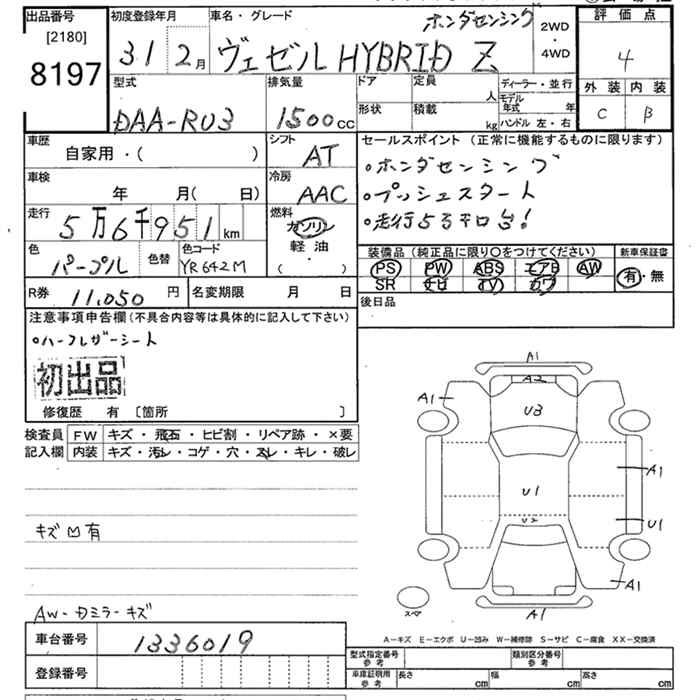 出品番号 初度登録年月 車名・グレード ホンダセンシング 2WD・4WD 評価点
[2180]
8197 31 2月 ヴェゼル HYBRID Z 4
型式 排気量 ドア 定員 人 ディーラー・並行 外装 内装
DAA-RU3 1500cc 形状 積載 kg モデル年式 年 ハンドル 左・右 C B
車歴 自家用・( ) シフト AT セールスポイント (正常に機能するものに限ります)
車検 年 月( 日) 冷房 AAC ・ホンダセンシング
・プッシュスタート
走行 5万6千951km 燃料 ガソリン 軽油 ・( ) ・走行5.6千キロ台!
色 パープル 色替 色コード YR642M 装備品 (純正品に限り○をつけてください) 新車保証書
PS PW ABS エアB AW 有・無
SR ナビ TV カワ
R券 11,050円 名変期限 月 日 後日品
注意事項申告欄(不具合内容等は具体的に記入して下さい)
・ハーフレザーシート
初出品
修復歴 有 〔箇所 〕
検査員 FW キズ・飛石・ヒビ割・リペア跡・×要
記入欄 内装 キズ・汚レ・コゲ・穴・スレ・キレ・破レ
A1
A2
A1 U3
A1
U1
U2 U1
A1
A1
スペア
キズ凹有
AW-ドミラーキズ
A-キズ E-エクボ U-凹み W-補修跡 S-サビ C-腐食 XX-交換済
車台番号 1336019
登録番号
型式指定番号 参考 類別区分番号 参考
車庫証明用 参考 長さ cm 幅 cm 高さ cm